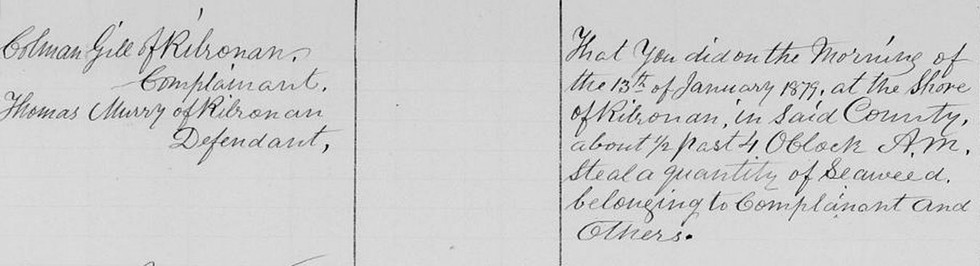 Colman Gill of Kilronan,
Complainant.
Thomas Murry of Kilronan
Defendant,
That You did on the Morning of
the 13th of January 1879, at the Shore
of Kilronan, in Said County,
about ½ past 4 OClock A.M.
Steal a quantity of Seaweed.
belonging to Complainant and
Others.